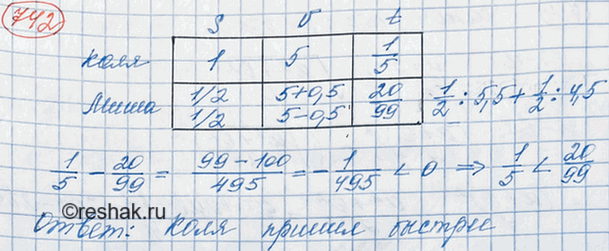 742
S v t
Коля 1 5 1/5
Миша 1/2 5+0,5 20/99 1/2 : 5,5 + 1/2 : 4,5
1/2 5-0,5
1/5 - 20/99 = (99-100)/495 = -1/495 < 0 ⇒ 1/5 < 20/99
©reshak.ru
Ответ: Коля пришел быстрее